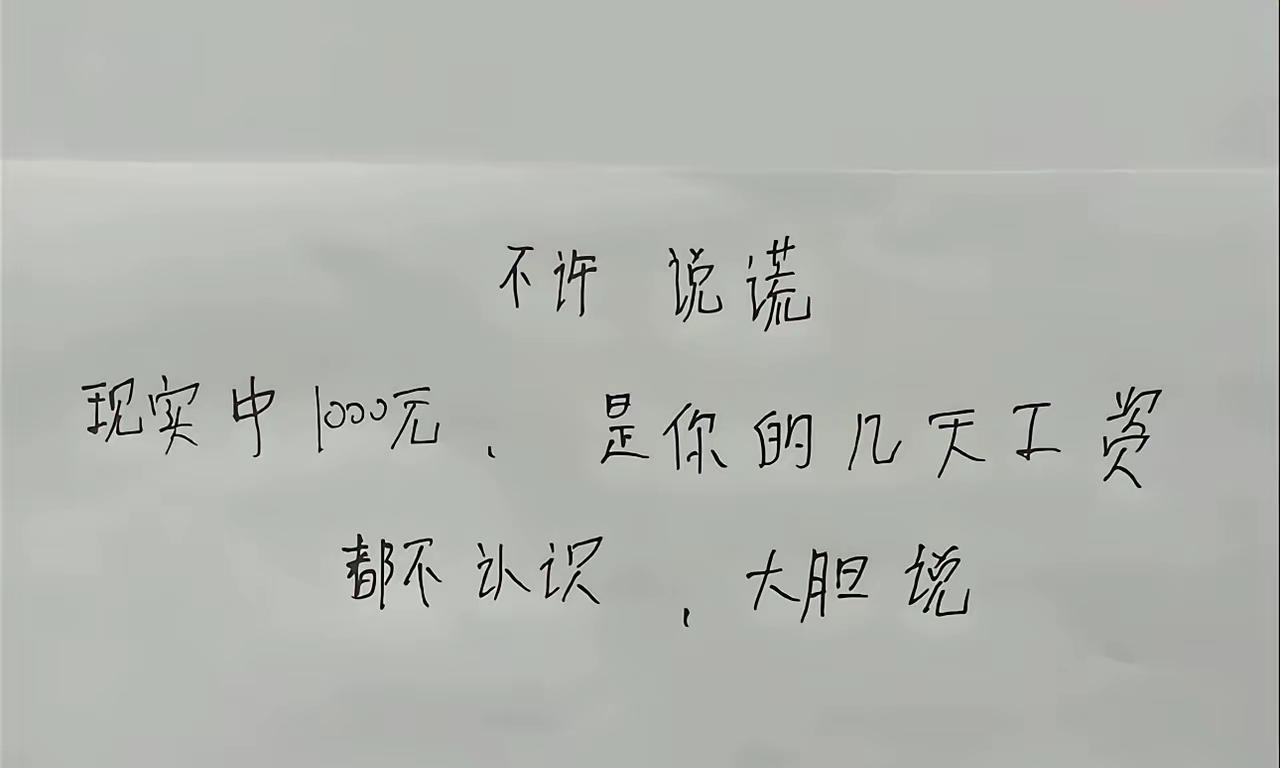 不许说谎
现实中1000元、是你的几天工资
都不认识,大胆说